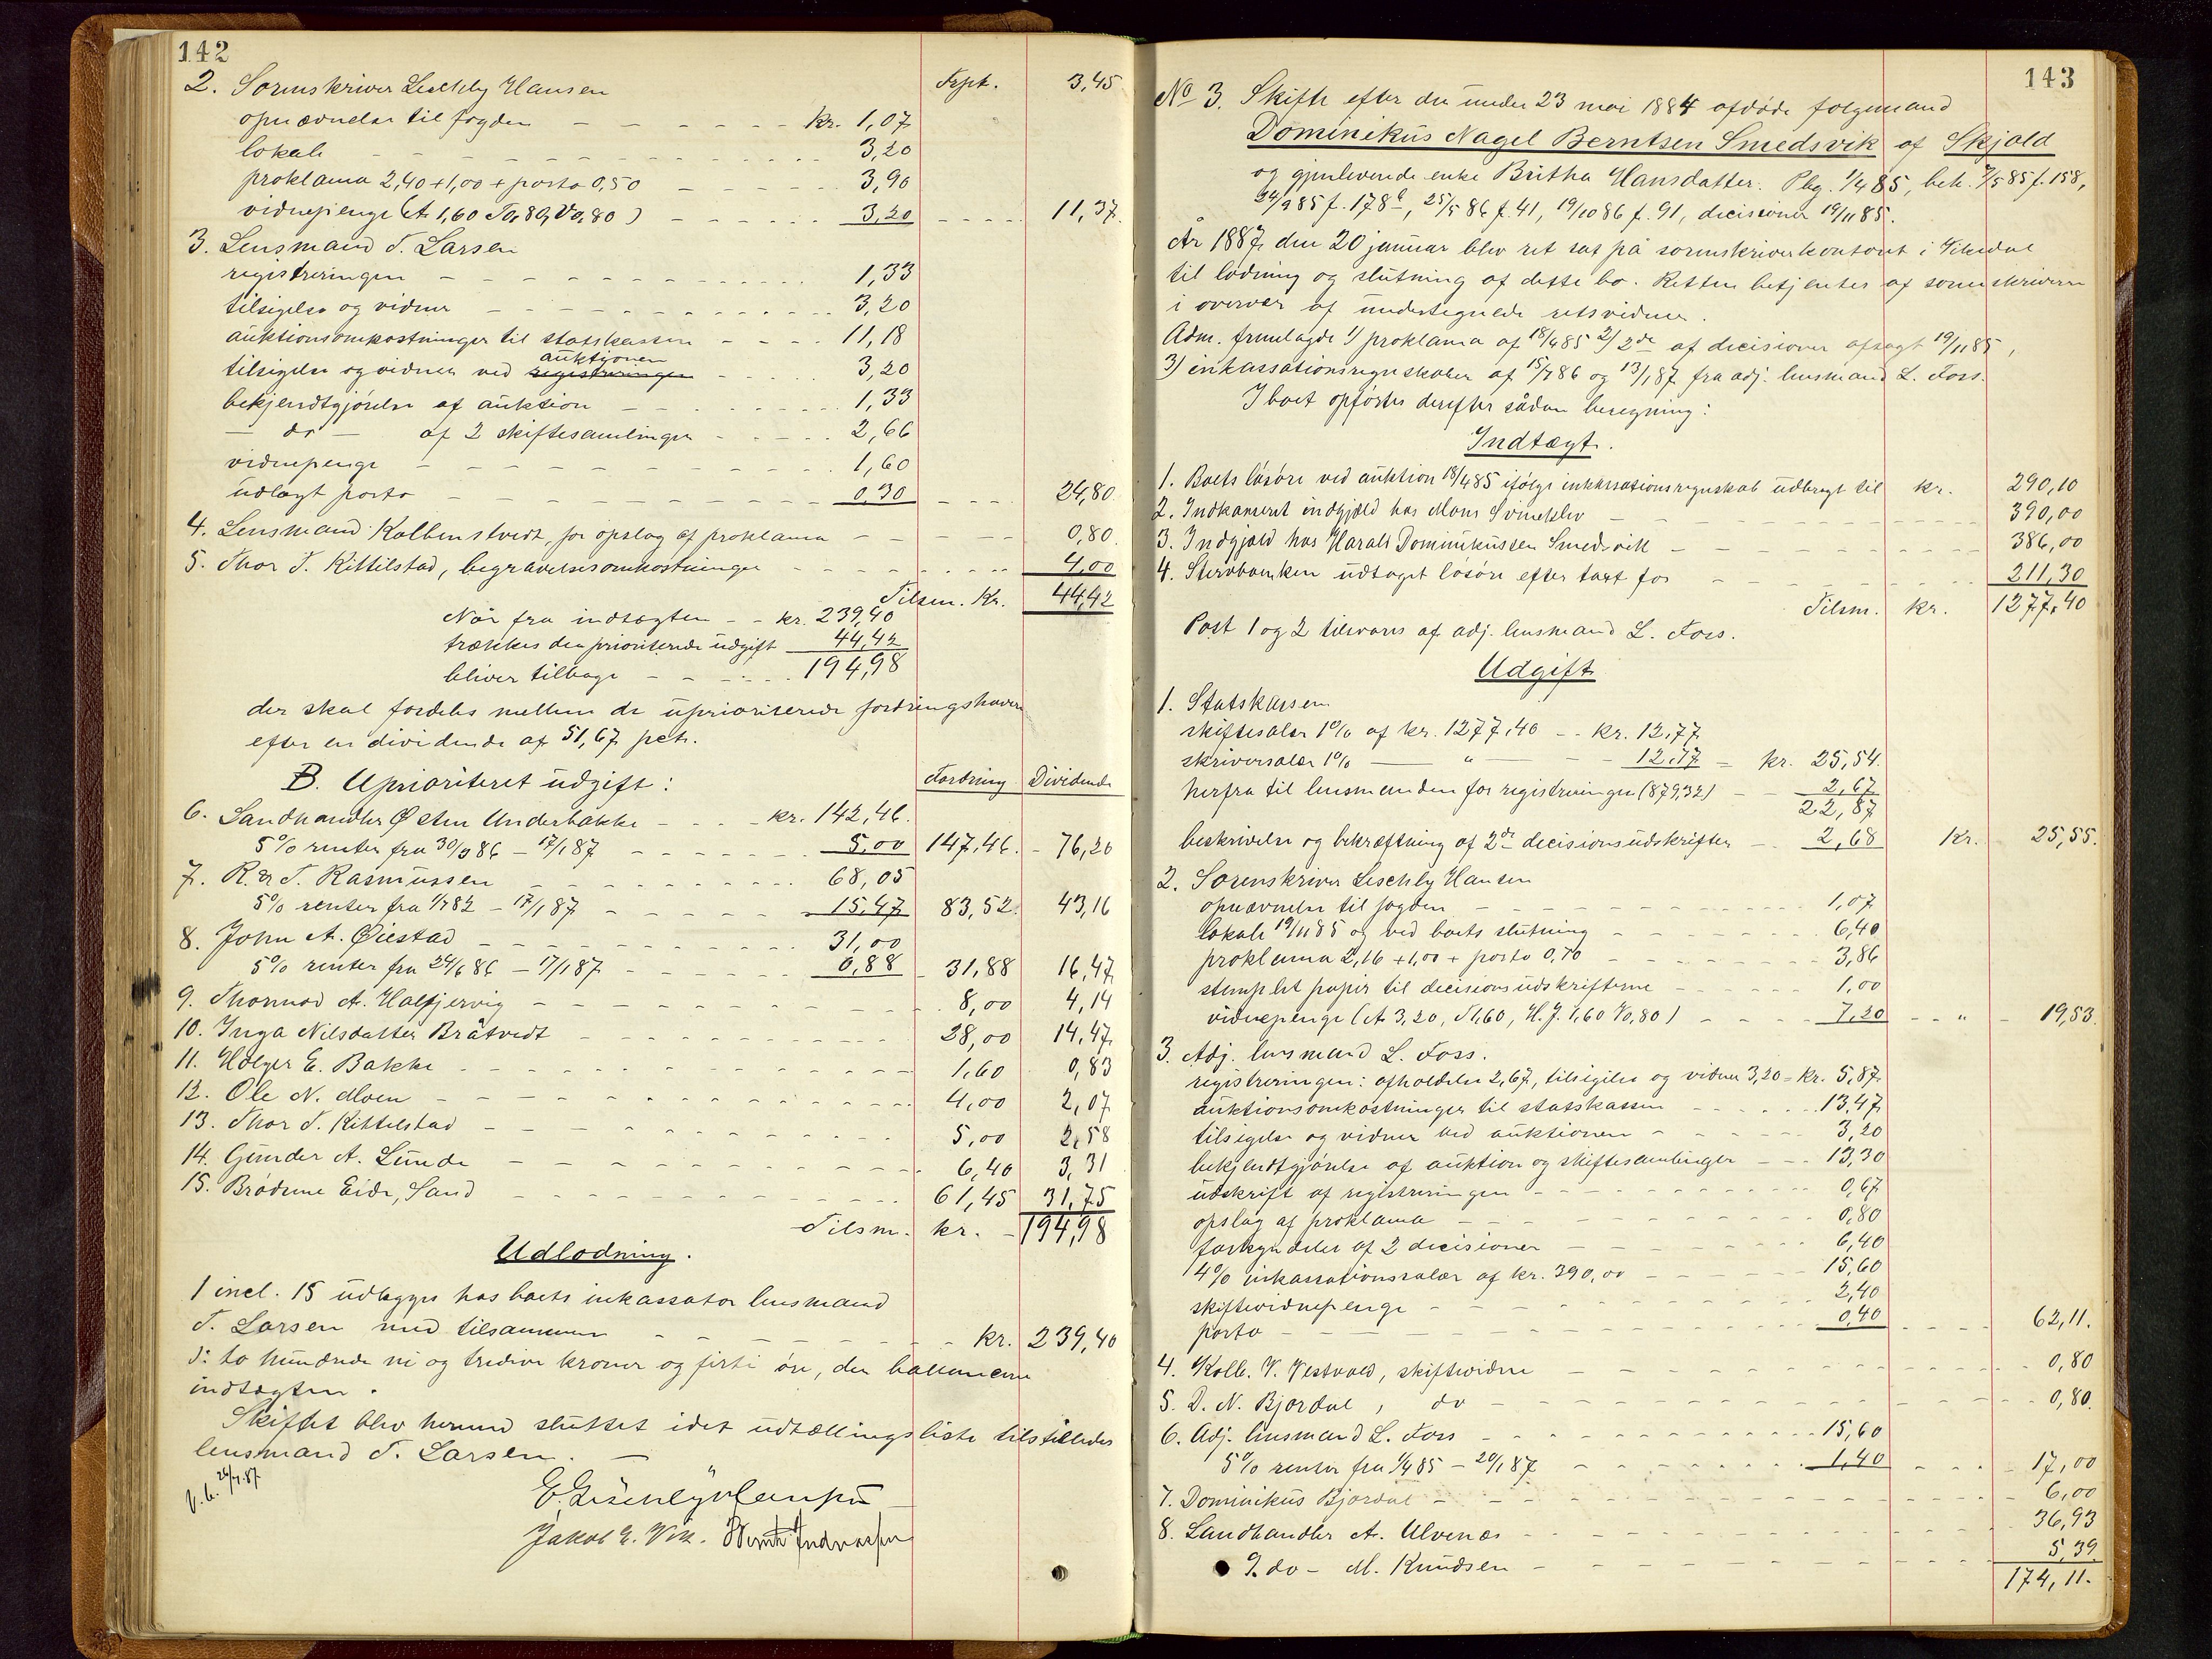 142
2. Sorenskriver Leschly Hansen Trpt. 3,45
opnævnelse til fogden kr. 1,07
lokale 3,20
proklama 2,40 + 1,00 + porto 0,50 3,90
vidnepenge (A 1,60 Ta 80, V 0,80) 3,20 11,37.
3. Lensmand T. Larsen
registreringen 1,33
tilsigelse og vidner 3,20
auktionsomkostninger til statskassen 11,18
tilsigelse og vidner ved registreringen auktionen 3,20
bekjendtgjørelse af auktion 1,33
— do — af 2 skiftesamlinger 2,66
vidnepenge 1,60
udlagt porto 0,30 24,80
4. Lensmand Kolbenstvedt, for opslag af proklama 0,80.
5. Thor T. Kittilstad, begravelsesomkostninger 4,00
Tilsm. Kr. 44,42
Når fra indtægten kr. 239,40
trækkes den prioriterede udgift 44,42
bliver tilbage 194,98
der skal fordeles mellem de uprioriterede fordringshavere
efter en dividende af 51,67 pct.
B. Uprioriteret udgift: Fordring Dividende
6. Landhandler Østen Underbakke kr. 142,46.
5% renter fra 30/3 86 - 17/1 87 5,00 147,46. 76,20
7. R. & T. Rasmussen 68,05
5% renter fra 1/7 82 - 17/1 87 15,47 83,52. 43,16
8. John A. Øiestad 31,00
5% renter fra 24/6 86 - 17/1 87 0,88 31,88 16,47
9. Thormod A. Halfjervig 8,00 4,14
10. Inga Nilsdatter Bråtvedt 28,00 14,47
11. Holger E. Bakke 1,60 0,83
12. Ole N. Moen 4,00 2,07
13. Thor T. Kittelstad 5,00 2,58
14. Gunder A. Lunde 6,40 3,31
15. Brødrene Eide, Sand 61,45 31,75
Tilsm. kr. 194,98
Udlodning.
1 incl. 15 udlægges hos boets inkassator lensmand
T. Larsen med tilsammen kr. 239,40
ɔ: to hundrede ni og tredive kroner og firti øre, der balancerer
indtægten.
Skiftet blev hermed sluttet idet udtællingsliste tilstilledes
lensmand T. Larsen. —
E. Leschly Hansen
Jakob E. Vik.
143
No 3. Skifte efter den under 23 mai 1884 afdøde folgemand
Dominikus Nagel Berntsen Smedsvik af Skjold
og gjenlevende enke Britha Hansdatter. Pbg. 1/4 85, beh. 7/5 85 f. 158,
24/9 85 f. 178b, 25/5 86 f. 41, 19/10 86 f. 91, decisioner 19/11 85.
År 1887 den 20 januar blev ret sat på sorenskriverkontoret i Vikedal
til lodning og slutning af dette bo. Retten betjentes af sorenskriveren
i overvær af undertegnede retsvidner.
Adm. fremlagde 1) proklama af 18/4 85 2) 2de af decisioner afsagt 19/11 85,
3) inkassationsregnskaber af 15/7 86 og 13/1 87 fra adj. lensmand L. Foss.
I boet opførtes derefter sådan beregning:
Indtægt.
1. Boets løsøre ved auktion 18/4 85 ifølge inkassationsregnskab udbragt til kr. 290,10
2. Indkasseret indgjæld hos Mons 390,00
3. Indgjæld hos Harald Dominikussen Smedsvik 386,00
4. Stervboenken udtaget løsøre efter taxt for 211,30
Tilsm. kr. 1277,40
Post 1 og 2 tilsvares af adj. lensmand L. Foss.
Udgift
1. Statskassen
skiftesalær 1% af kr. 1277,40 kr. 12,77
skriversalær 1% — " — 12,77 kr. 25,54.
herfra til lensmanden for registreringen (879,32) 2,67
22,87
beskrivelse og bekræftning af 2de decisionsudskrifter 2,68 Kr. 25,55.
2. Sorenskriver Leschly Hansen
opnævnelse til fogden 1,07
lokale 19/11 85 og ved boets slutning 6,40
proklama 2,16 + 1,00 + porto 0,70 3,86
stemplet papir til decisionsudskrifterne 1,00
vidnepenge (A 3,20, T 1,60, H. J. 1,60 V 0,80) 7,20 " 19,53.
3. Adj. lensmand L. Foss.
registreringen: afholdelse 2,67, tilsigelse og vidner 3,20 = Kr. 5,87
auktionsomkostninger til statskassen 13,47
tilsigelse og vidner ved auktionen 3,20
bekjendtgjørelse af auktion og skiftesamlinger 13,30
udskrift af registreringen 0,67
opslag af proklama 0,80
forkyndelse af 2 decisioner 6,40
4% inkassationssalær af kr. 390,00 15,60
skiftevidnepenge 2,40
porto 0,40 62,11.
4. Kolb. V. Vestvold, skiftevidne 0,80
5. D. N. Bjordal, do 0,80.
6. Adj. lensmand L. Foss 15,60
5% renter fra 1/4 85 - 20/1 87 1,40 17,00
7. Dominikus Bjordal 6,00
8. Landhandler A. Ulvenæs 36,93
9. do - M. Knudsen 5,39
174,11.